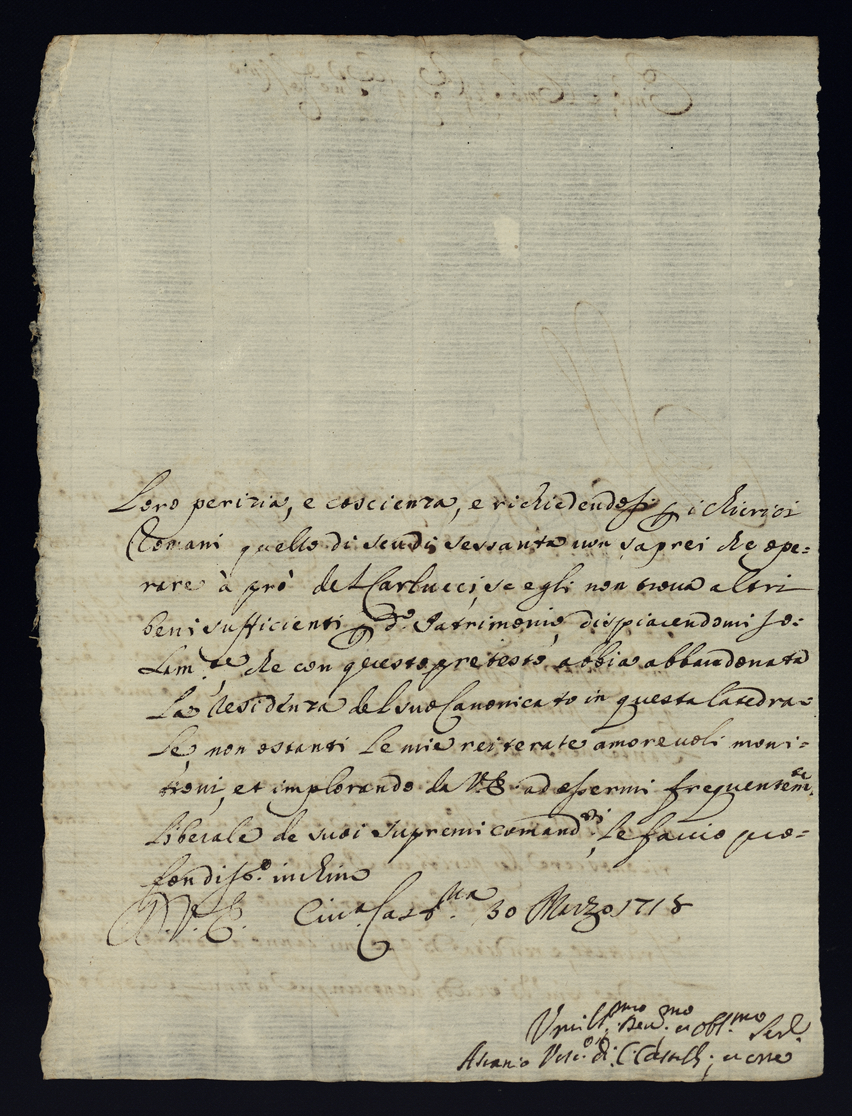 Loro perizia, e coscienza, e richiedendosi p i chierici
Romani quello di scudi sessanta non saprei che ope=
rare à prò del Carlucci, se egli non trova altri
beni sufficienti p d.º Patrimonio, dispiacendomi so=
lam.te che con questo pretesto abbia abbandonata
la residenza del suo Canonicato in questa Catedra=
le, non ostanti le mie reiterate amorevoli moni=
tioni, et implorando da V.E. ad essermi frequentem.te
liberale de suoi supremi comand.di, le faccio pro=
fondiss.º inchino
D.V.E. Civ.a Cast.na 30 Marzo 1718
Vmiliss.mo Dev.mo et Obl.mo Ser.
Vesc.º di C. Castell.